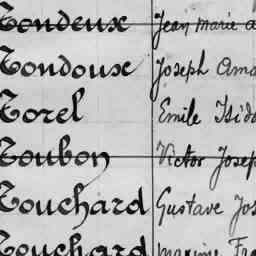 Tondeux Jean Marie a
Tondoux Joseph Ama
Torel Emile Isido
Toubon Victor Josep
Touchard Gustave Jos
Touchard Maxime Fra